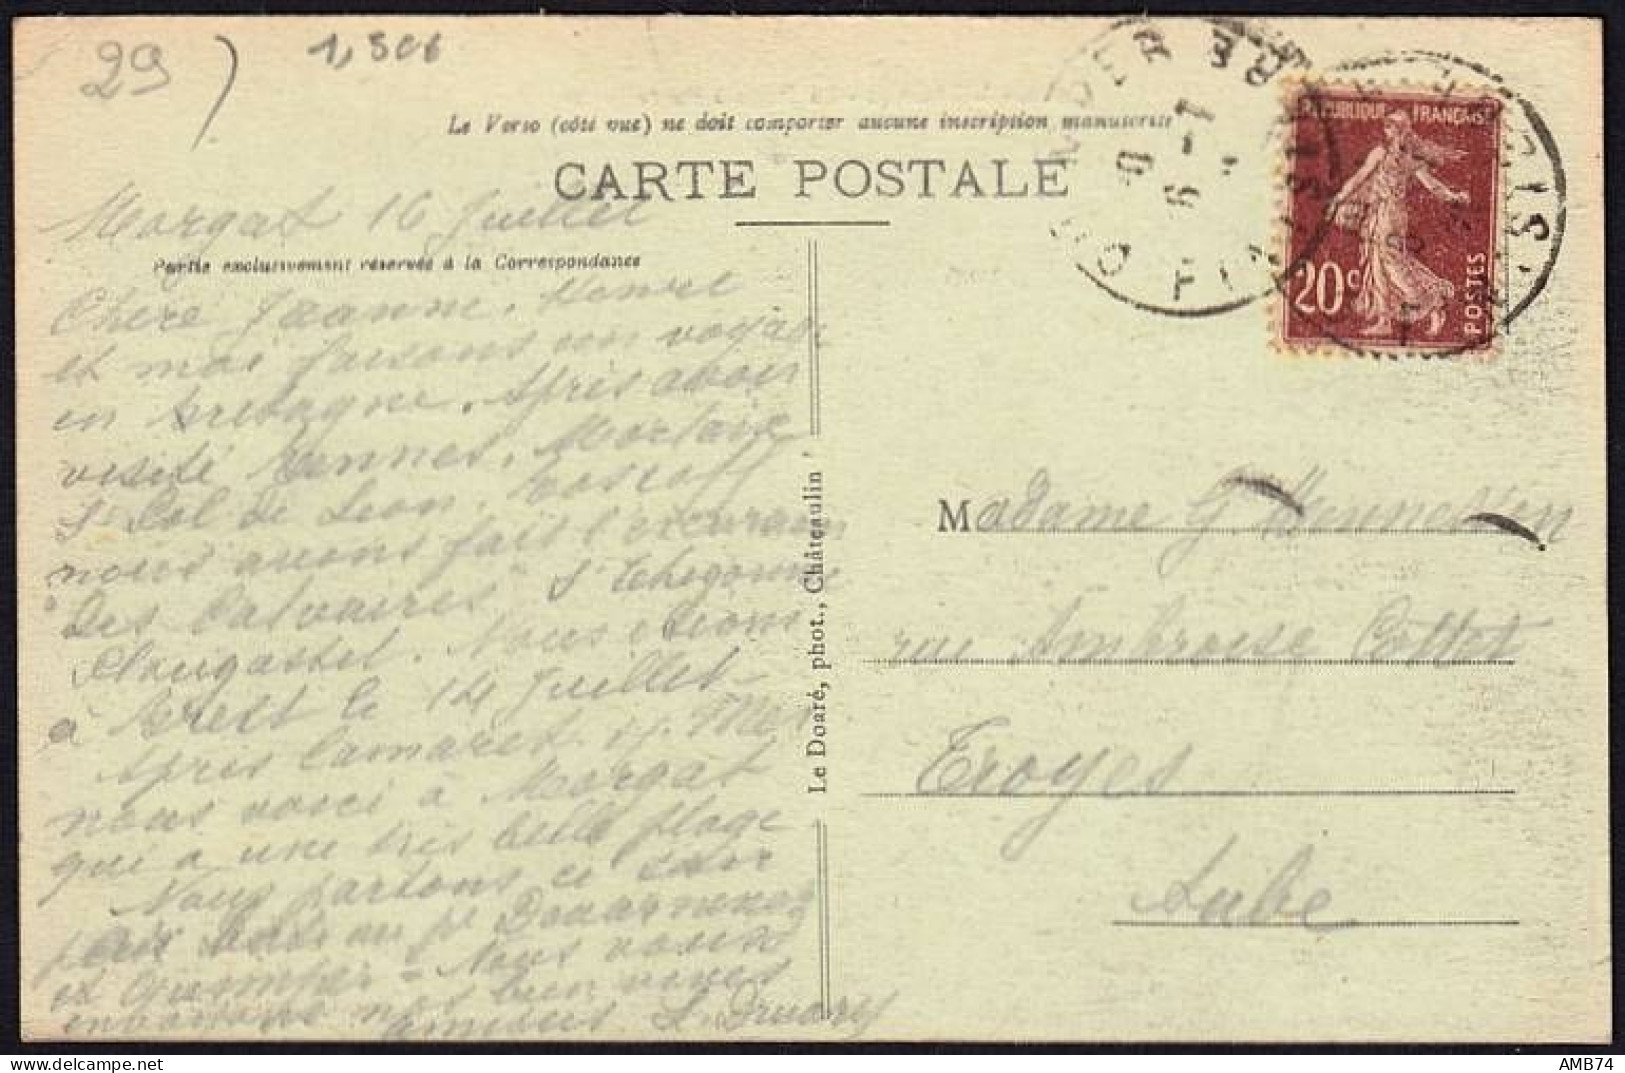 29)
1,50€
Le Verso (côté vue) ne doit comporter aucune inscription manuscrite
CARTE POSTALE
REPUBLIQUE FRANÇAISE
20c
POSTES
Morgat 16 Juillet
Partie exclusivement réservée à la Correspondance
Chere Jeanne, Henri
et moi faisons un voyage
en bretagne. Après avoir
visité Rennes, Morlaix
St Pol de Leon, Roscoff
nous avons fait l'excursion
des Calvaires St Thegonnec
Plougastel. Nous étions
à Brest le 14 Juillet
Après Camaret
nous voici à Morgat
qui a une très belle plage
Nous partons ce soir
par pr Douarnenez
et Quimper - Nous vous
envoyons nos bien vives
amitiés
Le Doaré, phot., Châteaulin
Madame G. Hennequin
rue Ambroise Cottet
Troyes
Aube
AMB74